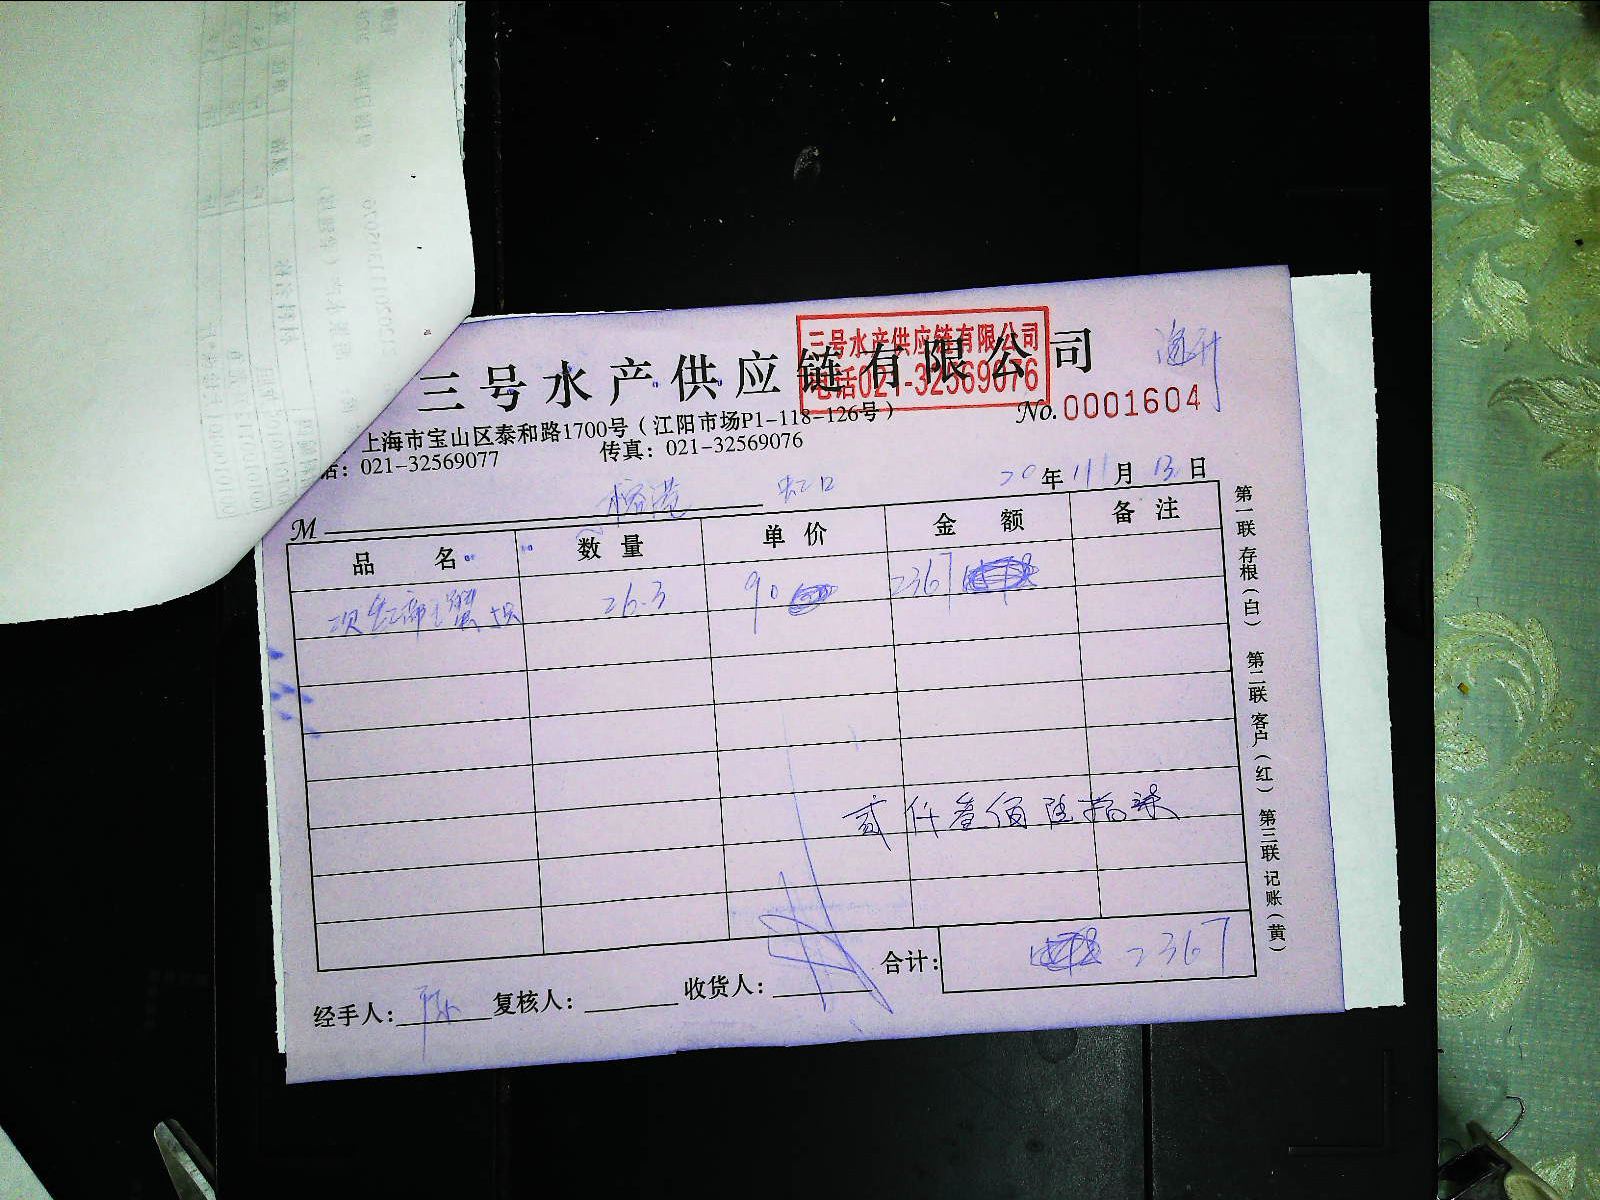 三号水产供应链有限公司
三号水产供应链有限公司
电话021-32569076
No. 0001604
上海市宝山区泰和路1700号（江阳市场P1-118-126号）
话：021-32569077 传真：021-32569076
M 虹口 20年11月13日
品 名 数 量 单 价 金 额 备 注
26.3 90 2367
贰仟叁佰陆拾柒
合计： 2367
经手人：陈 复核人： 收货人：
第一联 存根（白） 第二联 客户（红） 第三联 记账（黄）